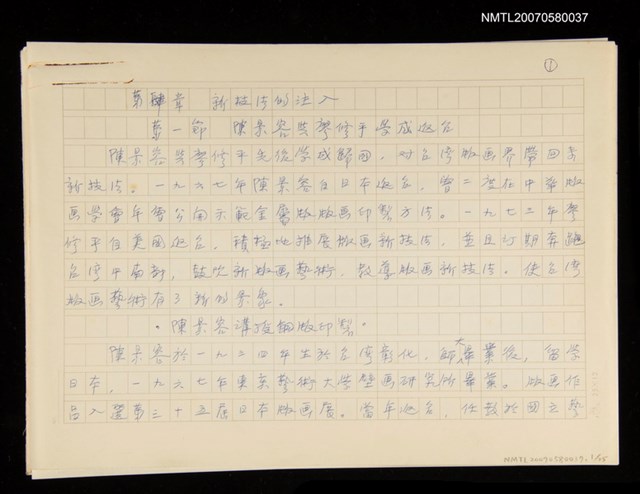 NMTL20070580037
①
第肆章 新技法的注入
第一節 陳景容與廖修平學成返台
陳景容與廖修平先後學成歸國，對台灣版画界帶回來
新技法。一九六七年陳景容自日本返台，曾二度在中華版
画學會年會公開示範金屬版版画印製方法。一九七三年廖
修平自美國返台，積極地推展版画新技法，並且訂期奔跑
台湾中南部，鼓吹新版画藝術，教導版画新技法。使台湾
版画藝術有了新的景象。
·陳景容講授銅版印製·
陳景容於一九三四年生於台湾彰化，師大畢業後，留学
日本，一九六七年東京藝術大学壁画研究所畢業。版画作
品入選第三十五屆日本版画展。當年返台，任教於國立藝
NMTL20070580037 1/45